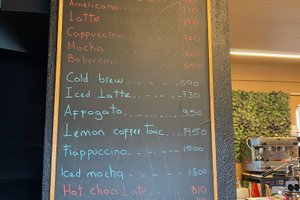 Americano
Latte
Cappuccino
Mocha
Babyccino
Cold brew ...690
Iced Latte ...730
Affogato ...950
Lemon coffee tonic ..1950
Frappuccino.....1500
Iced mocha ....1500
Hot chocolate ....810